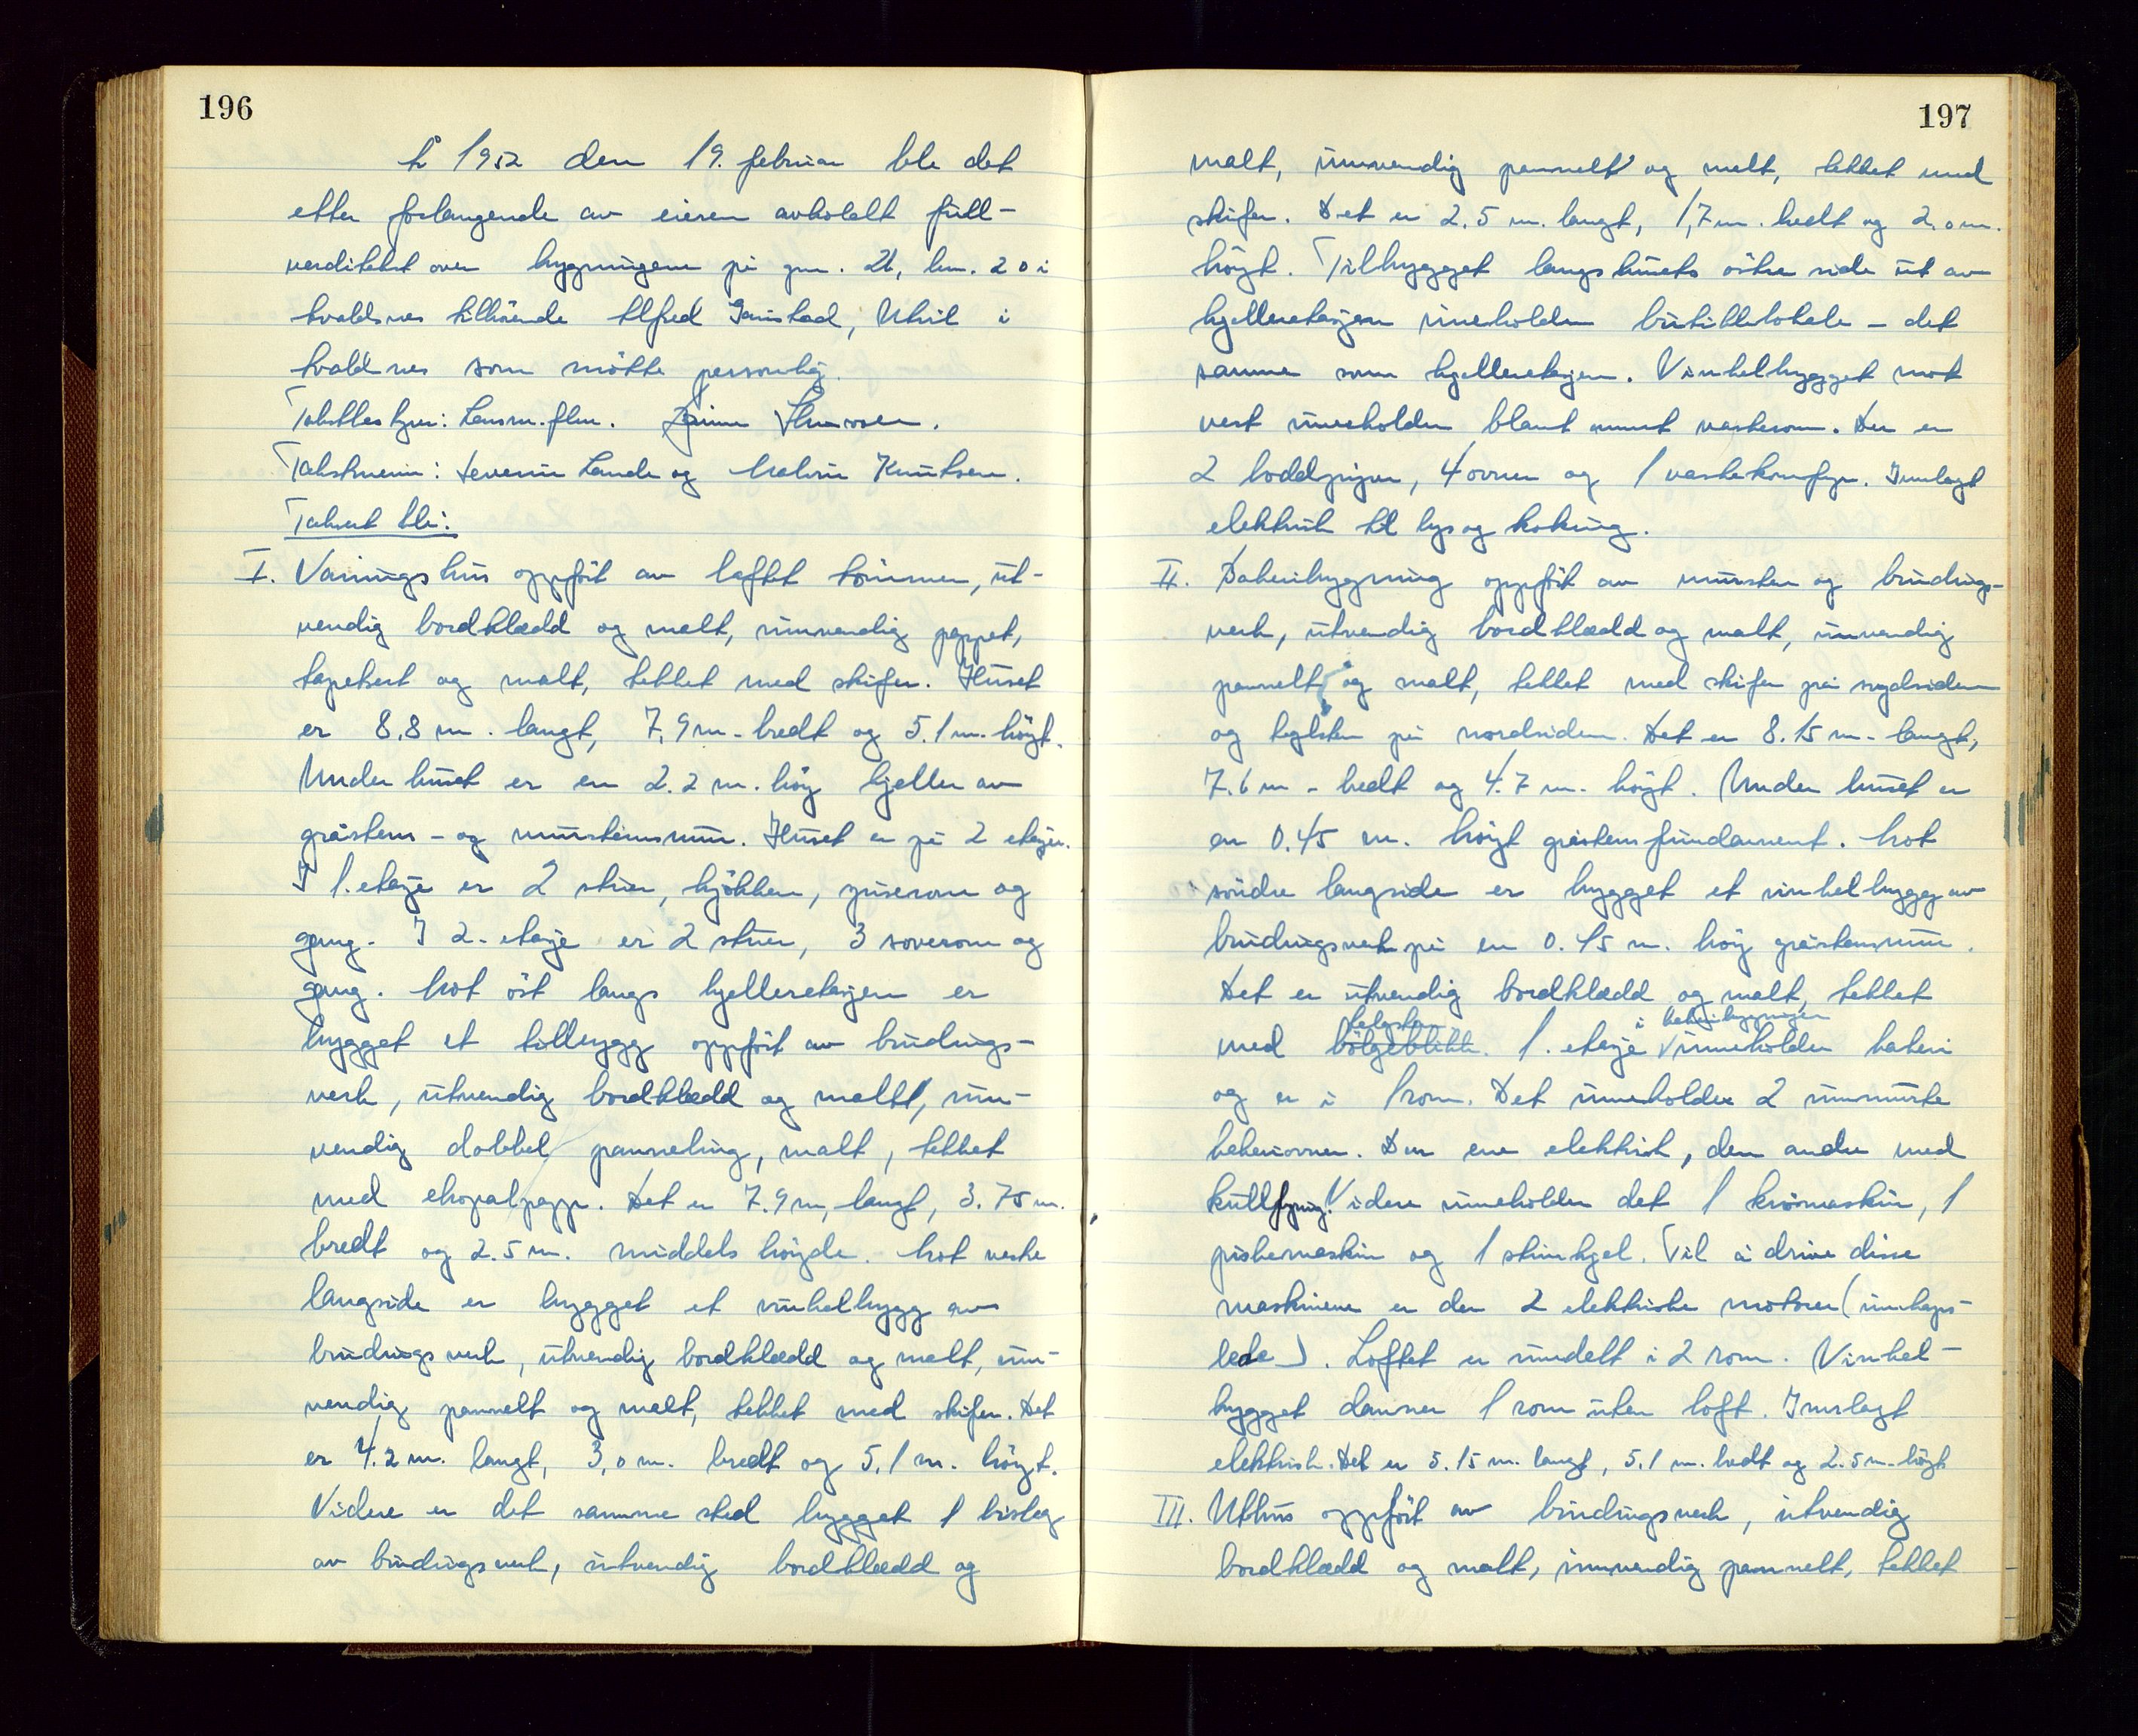 196
År 1952 den 19. februar ble det
etter forlangende av eieren avholdt full-
verditakst over bygningene på gnr. 26, bnr. 20 i
Avaldsnes tilhörende Alfred Ganstad, Utvik i
Avaldsnes som mötte personlig.
Takstbestyrer: Lensm.flm.
Takstmenn: Severin Lande og Malvin Knutsen.
Taksert ble:
I. Våningshus oppfört av laftet tömmer, ut-
vendig bordklædd og malt, innvendig pappet,
tapetsert og malt, tekket med skifer. Huset
er 8,8 m. langt, 7,9 m. bredt og 5.1 m. höyt.
Under huset er en 2.2 m. höy kjeller av
gråstens- og murstensmur. Huset er på 2 etasjer.
I 1. etasje er 2 stuer, kjökken, spiserom og
gang. I 2. etasje er 2 stuer, 3 soverom og
gang. Mot öst langs kjelleretasjen er
bygget et tilbygg oppfört av bindings-
verk, utvendig bordklædd og malt, inn-
vendig dobbel panneling, malt, tekket
med ekopalpapp. Det er 7.9 m. langt, 3.75 m.
bredt og 2.5 m. middels höyde. Mot vestre
langside er bygget et vinkelbygg av
bindingsverk, utvendig bordklædd og malt, inn-
vendig pannelt og malt, tekket med skifer. Det
er 4.2 m. langt, 3,0 m. bredt og 5,1 m. höyt.
Videre er det samme sted bygget 1 bislag
av bindingsverk, utvendig bordklædd og
197
malt, innvendig pannelt og malt, tekket med
skifer. Det er 2.5 m. langt, 1,7 m. bredt og 2,0 m.
höyt. Tilbygget langs husets östre side ut av
kjelleretasjen inneholder butikklokale - det
samme som kjelleretasjen. Vinkelbygget mot
vest inneholder blant annet vaskerom. Der er
2 loddpiper, 4 ovner og 1 vaskekomfyr. Innlagt
elektrisk til lys og koking.
II. Bakeribygning oppfört av mursten og bindings-
verk, utvendig bordklædd og malt, innvendig
pannelt og malt, tekket med skifer på sydsiden
og teglsten på nordsiden. Det er 8.15 m. langt,
7.6 m. bredt og 4.7 m. höyt. Under huset er
en 0.45 m. höyt gråstensfundament. Mot
söndre langside er bygget et vinkelbygg av
bindingsverk på en 0.45 m. höy gråstensmur.
Det er utvendig bordklædd og malt, tekket
i bakeribygningen
med bölgeblikk. 1. etasje inneholder bakeri
og er i 1 rom. Det inneholder 2 innmurte
bakeriovner. Den ene elektrisk, den andre med
kullfyring. Videre inneholder det 1 knamaskin, 1
piskemaskin og 1 Til å drive disse
maskinene er der 2 elektriske motorer (innkaps-
lede). Loftet er inndelt i 2 rom. Vinkel-
bygget danner 1 rom uten loft. Innlagt
elektrisk. Det er 5.15 m. langt, 5.1 m. bredt og 2.5 m. höyt.
III. Uthus oppfört av bindingsverk, utvendig
bordklædd og malt, innvendig pannelt, tekket